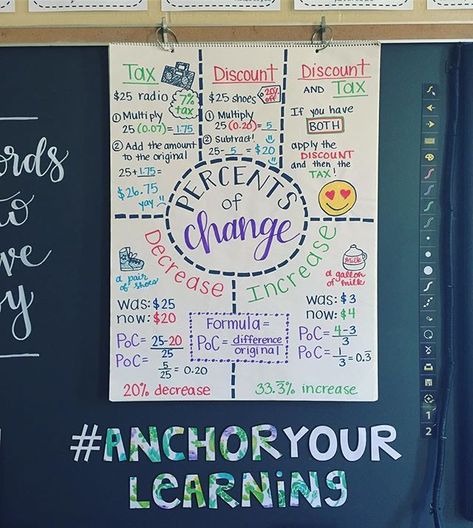 Tax
$25 radio
7% tax
① Multiply
25 (0.07) = 1.75
② Add the amount
to the original
25 + 1.75 =
$26.75
yay
Discount
$25 shoes
20% off
① Multiply
25 (0.20) = 5
② Subtract!
25 - 5 = $20
Discount
AND Tax
If you have
BOTH
apply the
DISCOUNT
and then the
TAX!
PERCENTS
of
change
Decrease
a pair
of shoes
was: $25
now: $20
PoC = 25-20
25
PoC = 5
25 = 0.20
20% decrease
Formula =
PoC = difference
original
Increase
Milk
a gallon
of milk
was: $3
now: $4
PoC = 4-3
3
PoC = 1
3 = 0.3̅
33.3̅% increase
ords
to
ve
by
1
2
#ANCHORYOUR
LEARNING